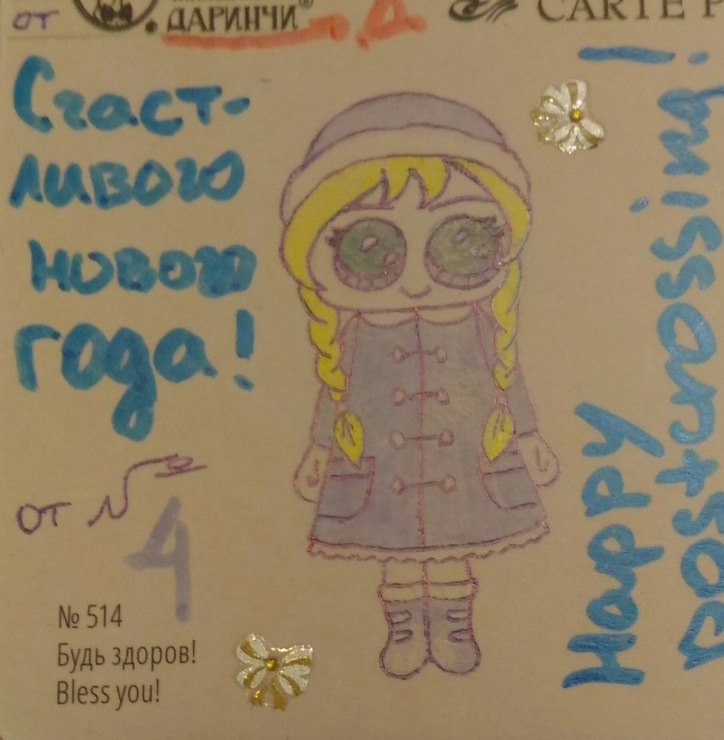 от
ДАРИНЧИ®
Д
CARTE P
Счаст-
ливого
нового
года!
от №
4
№ 514
Будь здоров!
Bless you!
Happy
postcrossing!